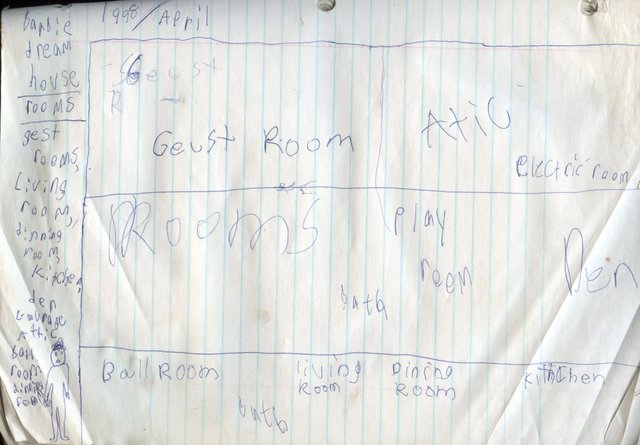 barbie
dream
house
rooms
gest
rooms,
Living
room,
dinning
room,
Kitchen,
den
Gaurage
Attic
ball
room
dinning
room
1998/April
Geust
R
Geust Room
Attic
electric room
Rooms
Play
room
Den
bath
Ball Room
living
Room
Dining
Room
Kithchen
bath